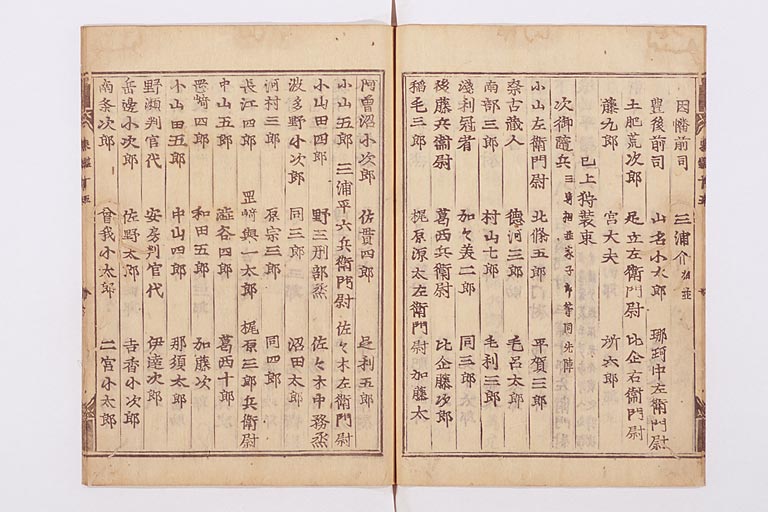 因幡前司 三浦介 相並
豊後前司 山名小太郎 那珂中左衛門尉
土肥荒次郎 足立左衛門尉 比企右衛門尉
藤九郎 宮大夫 所六郎
已上狩装束
次御隨兵 三騎相並家子郎等同先陣
小山左衛門尉 北條五郎 平賀三郎
奈古蔵人 徳河三郎 毛呂太郎
南部三郎 村山七郎 毛利三郎
淺利冠者 加々美二郎 同三郎
後藤兵衛尉 葛西兵衛尉 比企藤次郎
稲毛三郎 梶原源太左衛門尉 加藤太
阿曽沼小次郎 佐貫四郎 足利五郎
小山五郎 三浦平六兵衛門尉 佐々木左衛門尉
小山田四郎 野三刑部烝 佐々木中務烝
波多野小次郎 同三郎 沼田太郎
河村三郎 原宗三郎 同四郎
長江四郎 岡崎與一太郎 梶原三郎兵衛尉
中山五郎 澁谷四郎 葛西十郎
岡崎四郎 和田五郎 加藤次
小山田五郎 中山四郎 那須太郎
野瀬判官代 安房判官代 伊達次郎
岳邊小次郎 佐野太郎 吉香小次郎
南条次郎 曾我小太郎 二宮小太郎